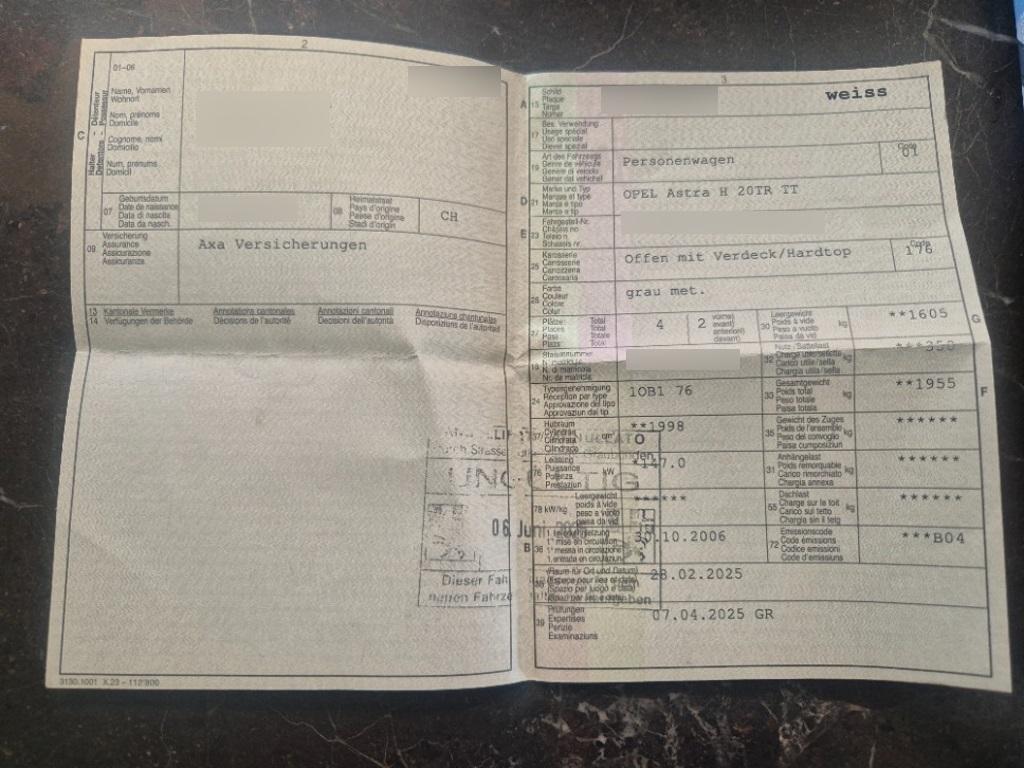 2
01-06
Name, Vornamen
Wohnort
Nom, prénoms
Domicile
Cognome, nomi
Domicilio
Num, prenums
Domicil
C
Halter Détenteur
Detentore Possessur
07
Geburtsdatum
Date de naissance
Data di nascita
Data da nasch.
08
Heimatstaat
Pays d'origine
Paese d'origine
Stadi d'origin
CH
09
Versicherung
Assurance
Assicurazione
Assicuranza
Axa Versicherungen
13 Kantonale Vermerke Annotations cantonales Annotazioni cantonali Annotaziuns chantunalas
14 Verfügungen der Behörde Décisions de l'autorité Decisioni dell'autorità Disposiziuns da l'autoritad
UNGÜLTIG
06. Juni
Dieser Fah
3130.1001 X.23 – 112'900
3
A 15
Schild
Plaque
Targa
Numer
weiss
17
Bes. Verwendung
Usage spécial
Uso speciale
Diever spezial
19
Art des Fahrzeugs
Genre de véhicule
Genere di veicolo
Gener dal vehichel
Personenwagen
Code
01
D 21
Marke und Typ
Marque et type
Marca e tipo
Marca e tip
OPEL Astra H 20TR TT
E 23
Fahrgestell-Nr.
Châssis no
Telaio n.
Schassis nr.
25
Karosserie
Carrosserie
Carrozzeria
Carossaria
Offen mit Verdeck/Hardtop
Code
176
26
Farbe
Couleur
Colore
Colur
grau met.
27
Plätze: Total
Places Total
Posti Totale
Plazs Total
4
2
vorne)
avant)
anteriori)
davant)
30
Leergewicht
Poids à vide
Peso a vuoto
Paisa da vid
kg
**1605
G
32
Nutz-/Sattellast
Charge utile/sellette
Carico utile/sella
Chargia utila/sella
kg
***350
18
Stammnummer
N° matricule
N. di matricola
Nr. da matricla
24
Typengenehmigung
Réception par type
Approvazione del tipo
Approvaziun dal tip
1OB1 76
33
Gesamtgewicht
Poids total
Peso totale
Paisa totala
kg
**1955
F
37
Hubraum
Cylindrée
Cilindrata
Cilindrada
cm³
**1998
35
Gewicht des Zuges
Poids de l'ensemble
Peso del convoglio
Paisa cumposiziun
kg
******
76
Leistung
Puissance
Potenza
Prestaziun
kW
*147.0
31
Anhängelast
Poids remorquable
Carico rimorchiato
Chargia annexa
kg
******
78 kW/kg
Leergewicht
poids à vide
peso a vuoto
paisa da vid
******
55
Dachlast
Charge sur le toit
Carico sul tetto
Chargia sin il tetg
kg
******
B 36
1. Inverkehrsetzung
1re mise en circulation
1a messa in circolazione
1. entrada en circulaziun
30.10.2006
72
Emissionscode
Code émissions
Codice emissioni
Code d'emissiuns
***B04
38
(Raum für Ort und Datum)
(Espace pour lieu et date)
(Spazio per luogo e data)
28.02.2025
39
Prüfungen
Expertises
Perizie
Examinaziuns
07.04.2025 GR